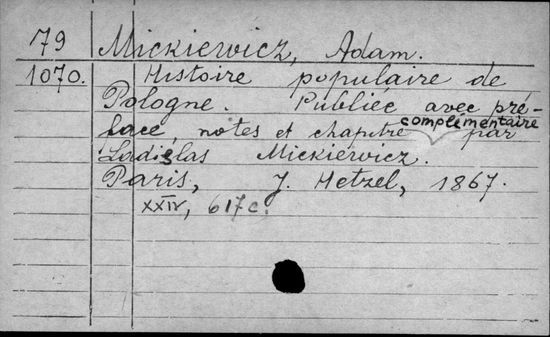 79 Mickiewicz, Adam.
1070. Histoire populaire de
Pologne. Publiée avec pré-
face, notes et chapitre complémentaire par
Ladislas Mickiewicz.
Paris, J. Hetzel, 1867.
XXIV, 617 c.